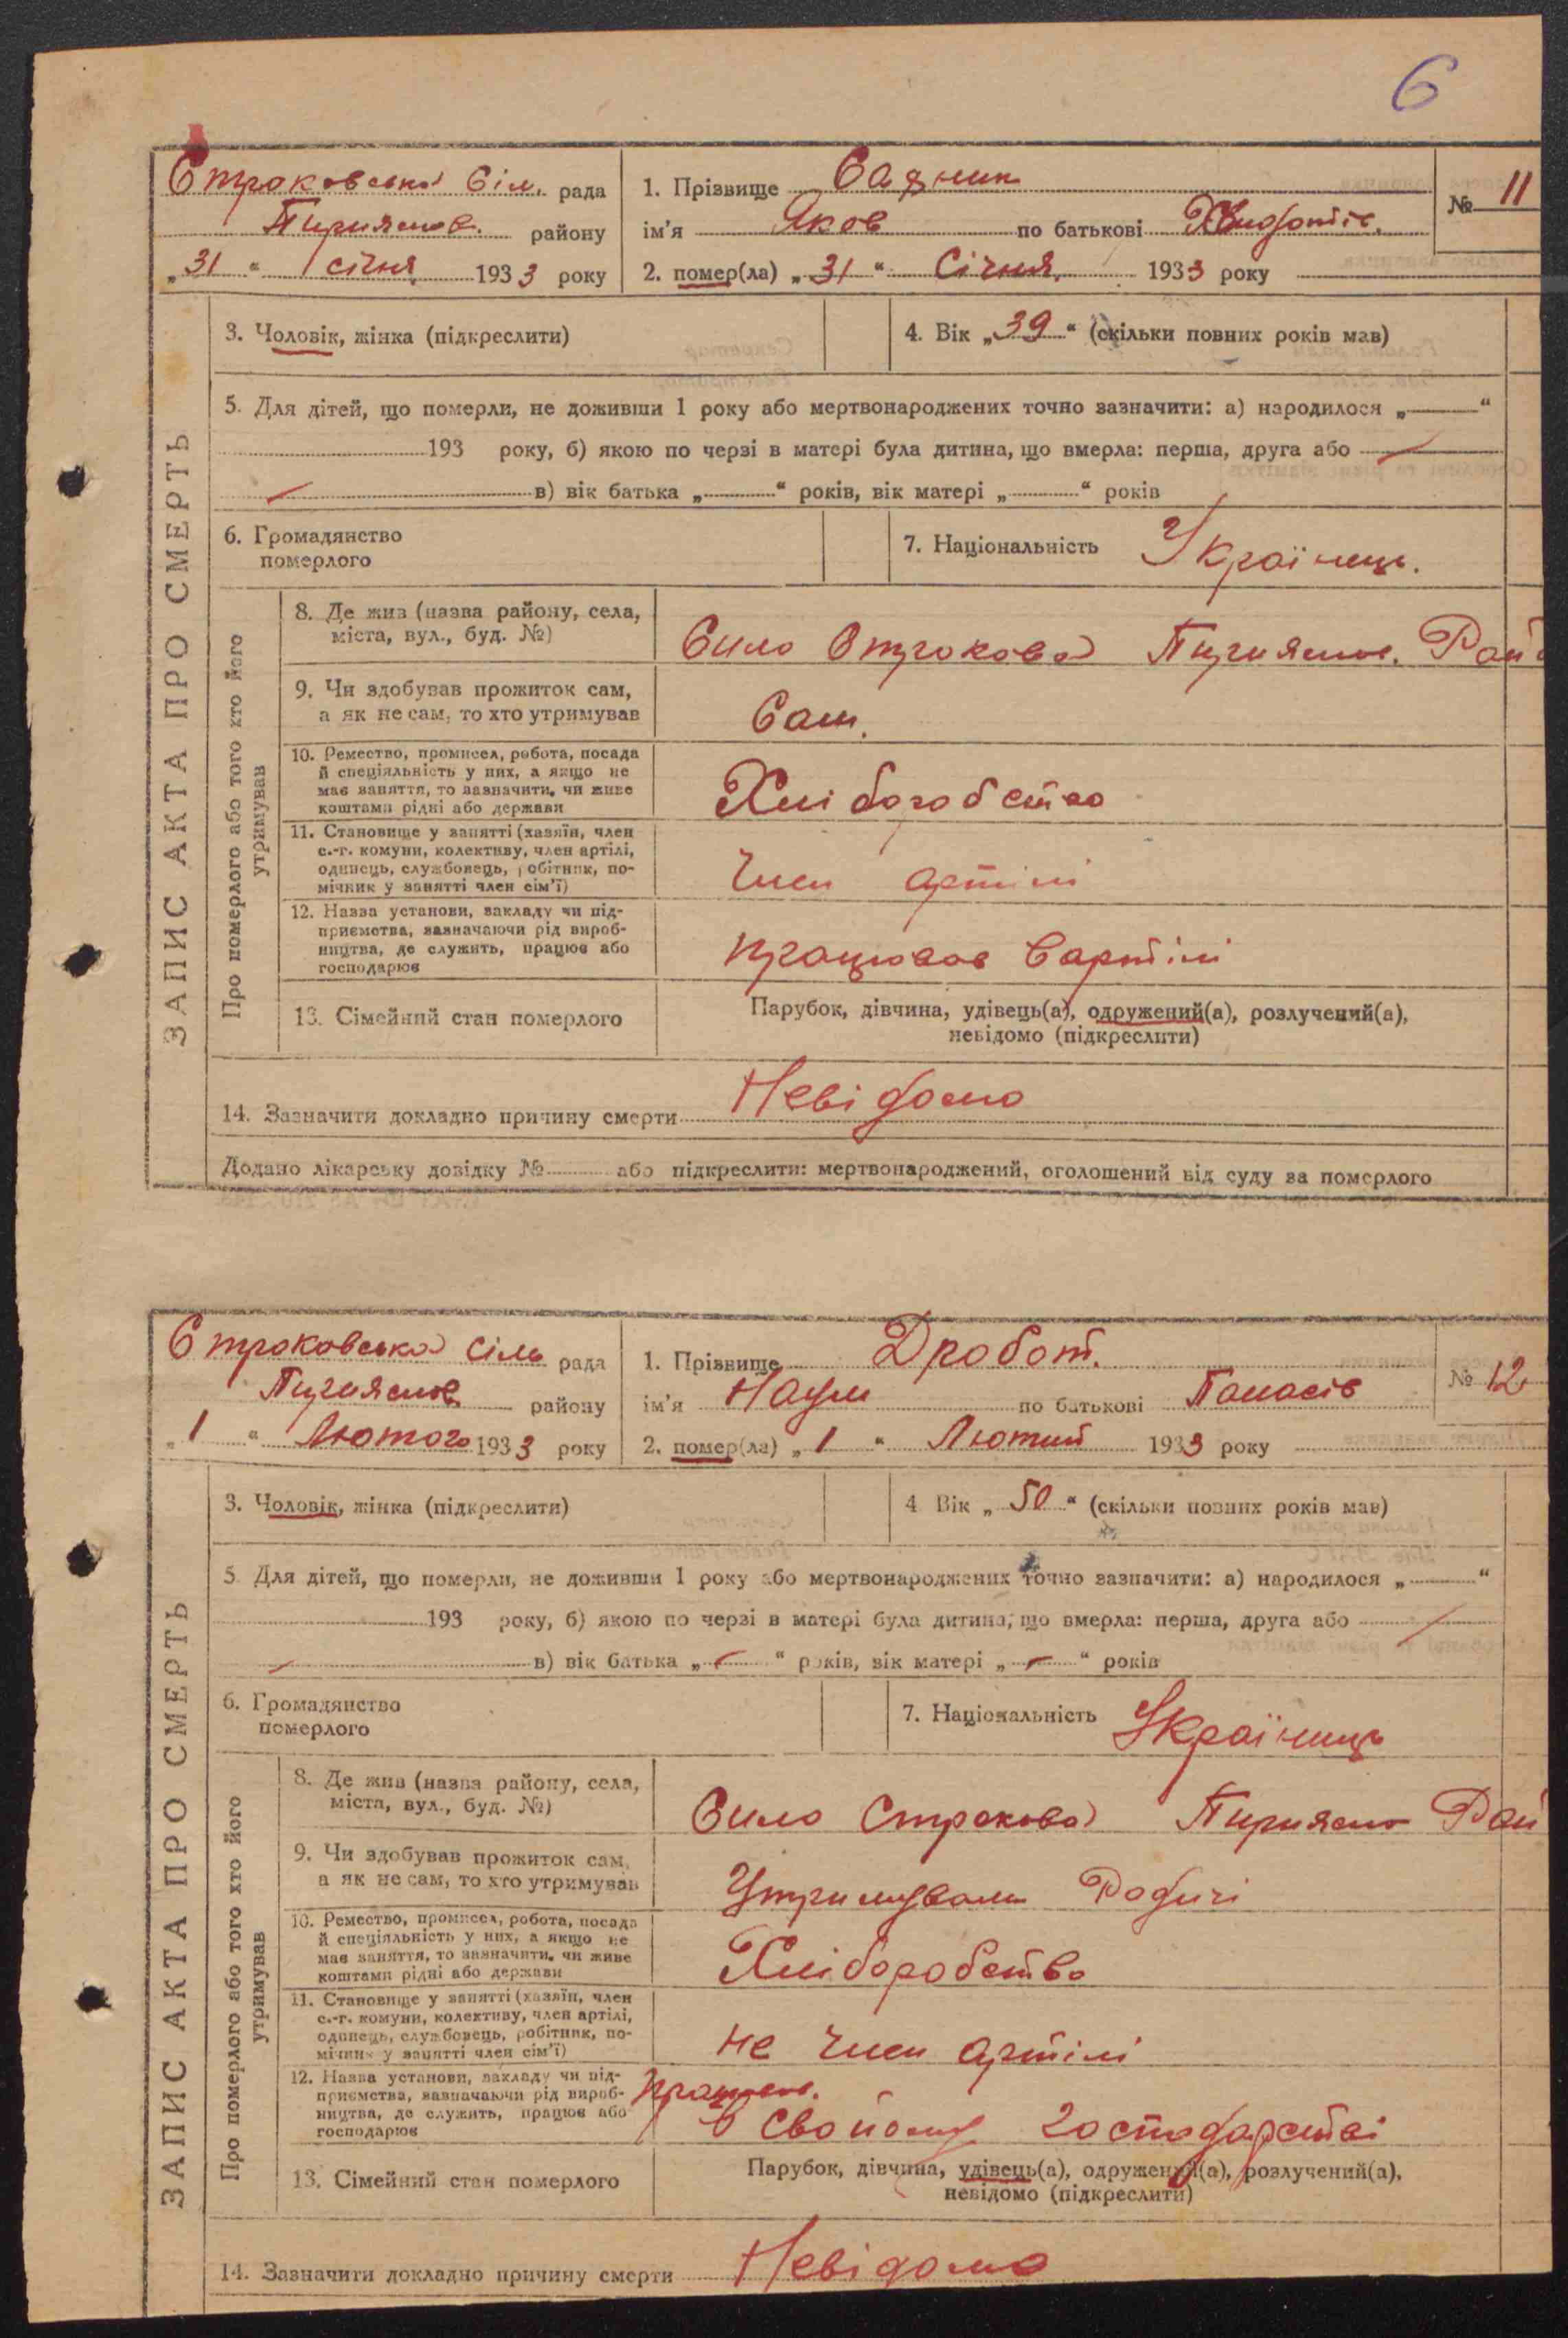 6
Строковська Сіл. рада
Пириясмов. району
„31“ січня 1933 року
1. Прізвище Садник
ім'я Яков по батькові
2. помер(ла) „31“ Січня, 1933 року
№ 11
ЗАПИС АКТА ПРО СМЕРТЬ
3. Чоловік, жінка (підкреслити)
4. Вік „39“ (скільки повних років мав)
5. Для дітей, що померли, не доживши 1 року або мертвонароджених точно зазначити: а) народилося „ “
193 року, б) якою по черзі в матері була дитина, що вмерла: перша, друга або
в) вік батька „ “ років, вік матері „ “ років
6. Громадянство
померлого
7. Національність Українець.
Про померлого або того кто його
утримував
8. Де жив (назва району, села,
міста, вул., буд. №)
Сило Строкова Рай
9. Чи здобував прожиток сам,
а як не сам, то хто утримував
Сам.
10. Ремество, промисел, робота, посада
й спеціяльність у них, а якщо не
має заняття, то зазначити, чи живе
коштами рідні або держави
Хліборобство
11. Становище у занятті (хазяїн, член
с.-г. комуни, колективу, член артілі,
одинець, службовець, робітник, по-
мічник у занятті член сім'ї)
Член артілі
12. Назва установи, закладу чи під-
приємства, зазначаючи рід вироб-
ництва, де служить, працює або
господарює
працював Вартілі
13. Сімейний стан померлого
Парубок, дівчина, удівець(а), одружений(а), розлучений(а),
невідомо (підкреслити)
14. Зазначити докладно причину смерти Невідомо
Додано лікарську довідку № або підкреслити: мертвонароджений, оголошений від суду за померлого
Строковська Сіль рада
району
„1“ Лютого 1933 року
1. Прізвище Дробот.
ім'я Наум по батькові Панасів
2. помер(ла) „1“ Лютий 1933 року
№ 12
ЗАПИС АКТА ПРО СМЕРТЬ
3. Чоловік, жінка (підкреслити)
4 Вік „50“ (скільки повних років мав)
5 Для дітей, що померли, не доживши 1 року або мертвонароджених точно зазначити: а) народилося „ “
193 року, б) якою по черзі в матері була дитина, що вмерла: перша, друга або
в) вік батька „ “ років, вік матері „ “ років
6. Громадянство
померлого
7. Національність Українець
Про померлого або того хто його
утримував
8. Де жив (назва району, села,
міста, вул., буд. №)
Сило Строкова Рай
9. Чи здобував прожиток сам,
а як не сам, то хто утримував
Утримували Родичі
10. Ремество, промисел, робота, посада
й спеціяльність у них, а якщо не
має заняття, то зазначити, чи живе
коштами рідні або держави
Хліборобство
11. Становище у занятті (хазяїн, член
с.-г. комуни, колективу, член артілі,
одинець, службовець, робітник, по-
мічник у занятті член сім'ї)
не член артілі
12. Назва установи, закладу чи під-
приємства, зазначаючи рід вироб-
ництва, де служить, працює або
господарює
В Свойому господарстві
13. Сімейний стан померлого
Парубок, дівчина, удівець(а), одружений(а), розлучений(а),
невідомо (підкреслити)
14. Зазначити докладно причину смерти Невідомо